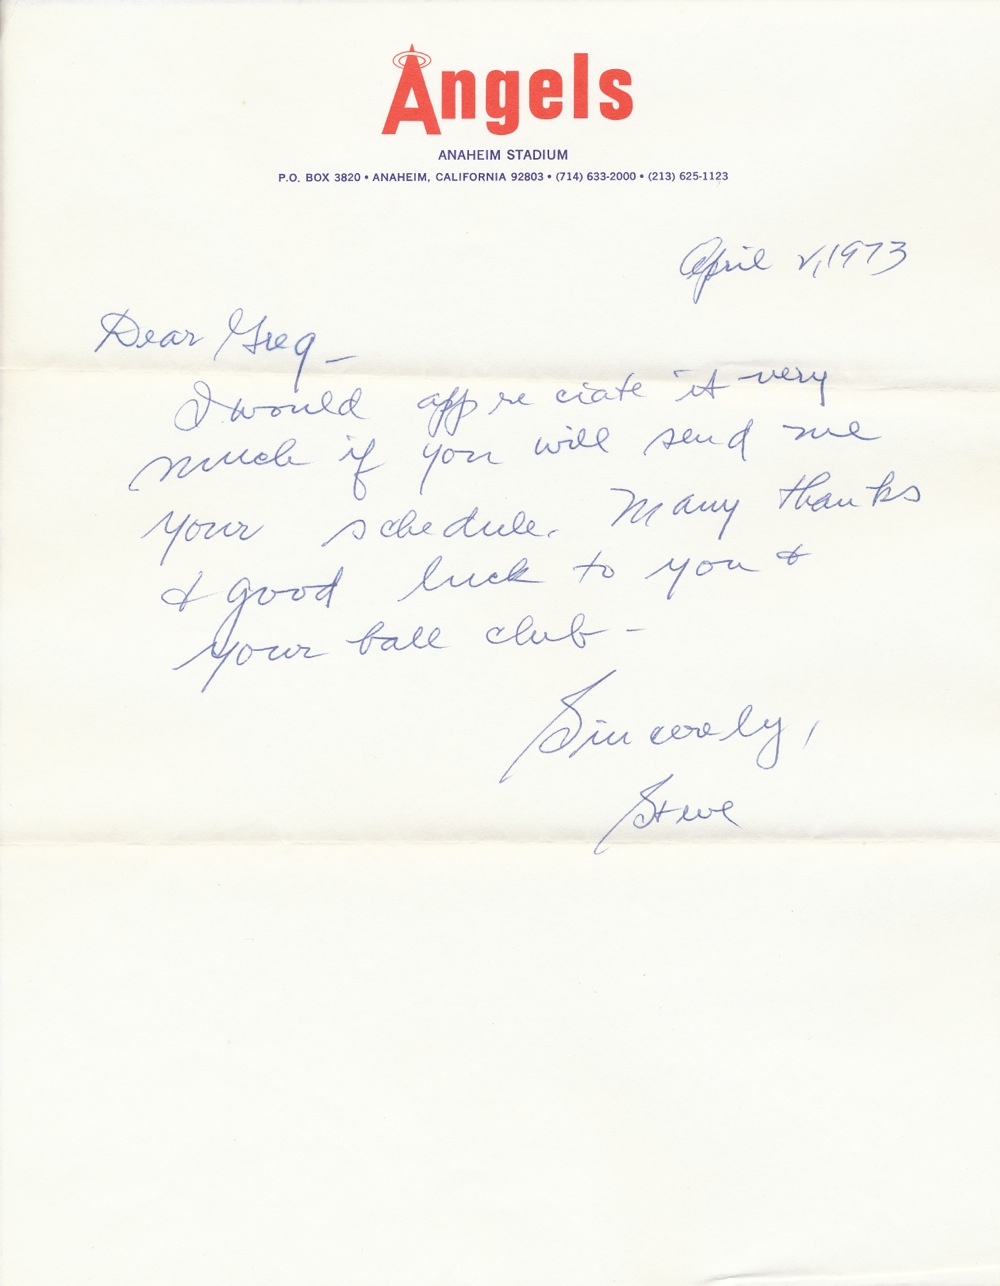 Angels
ANAHEIM STADIUM
P.O. BOX 3820 • ANAHEIM, CALIFORNIA 92803 • (714) 633-2000 • (213) 625-1123
April 2, 1973
Dear Greg –
I would appreciate it very
much if you will send me
your schedule. Many thanks
& good luck to you &
your ball club –
Sincerely,
Steve